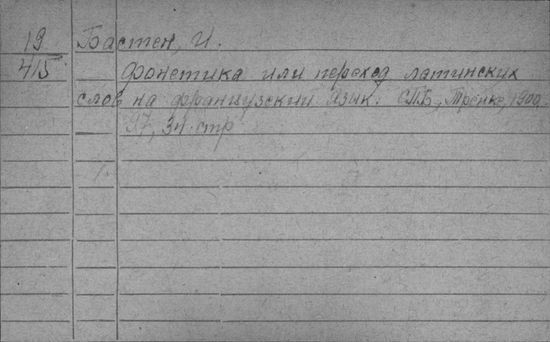 19 Бастен, И.
415 Фонетика или переход латинских
слов на французский язык. СПБ, Тренке, 1900
97, 3н. стр